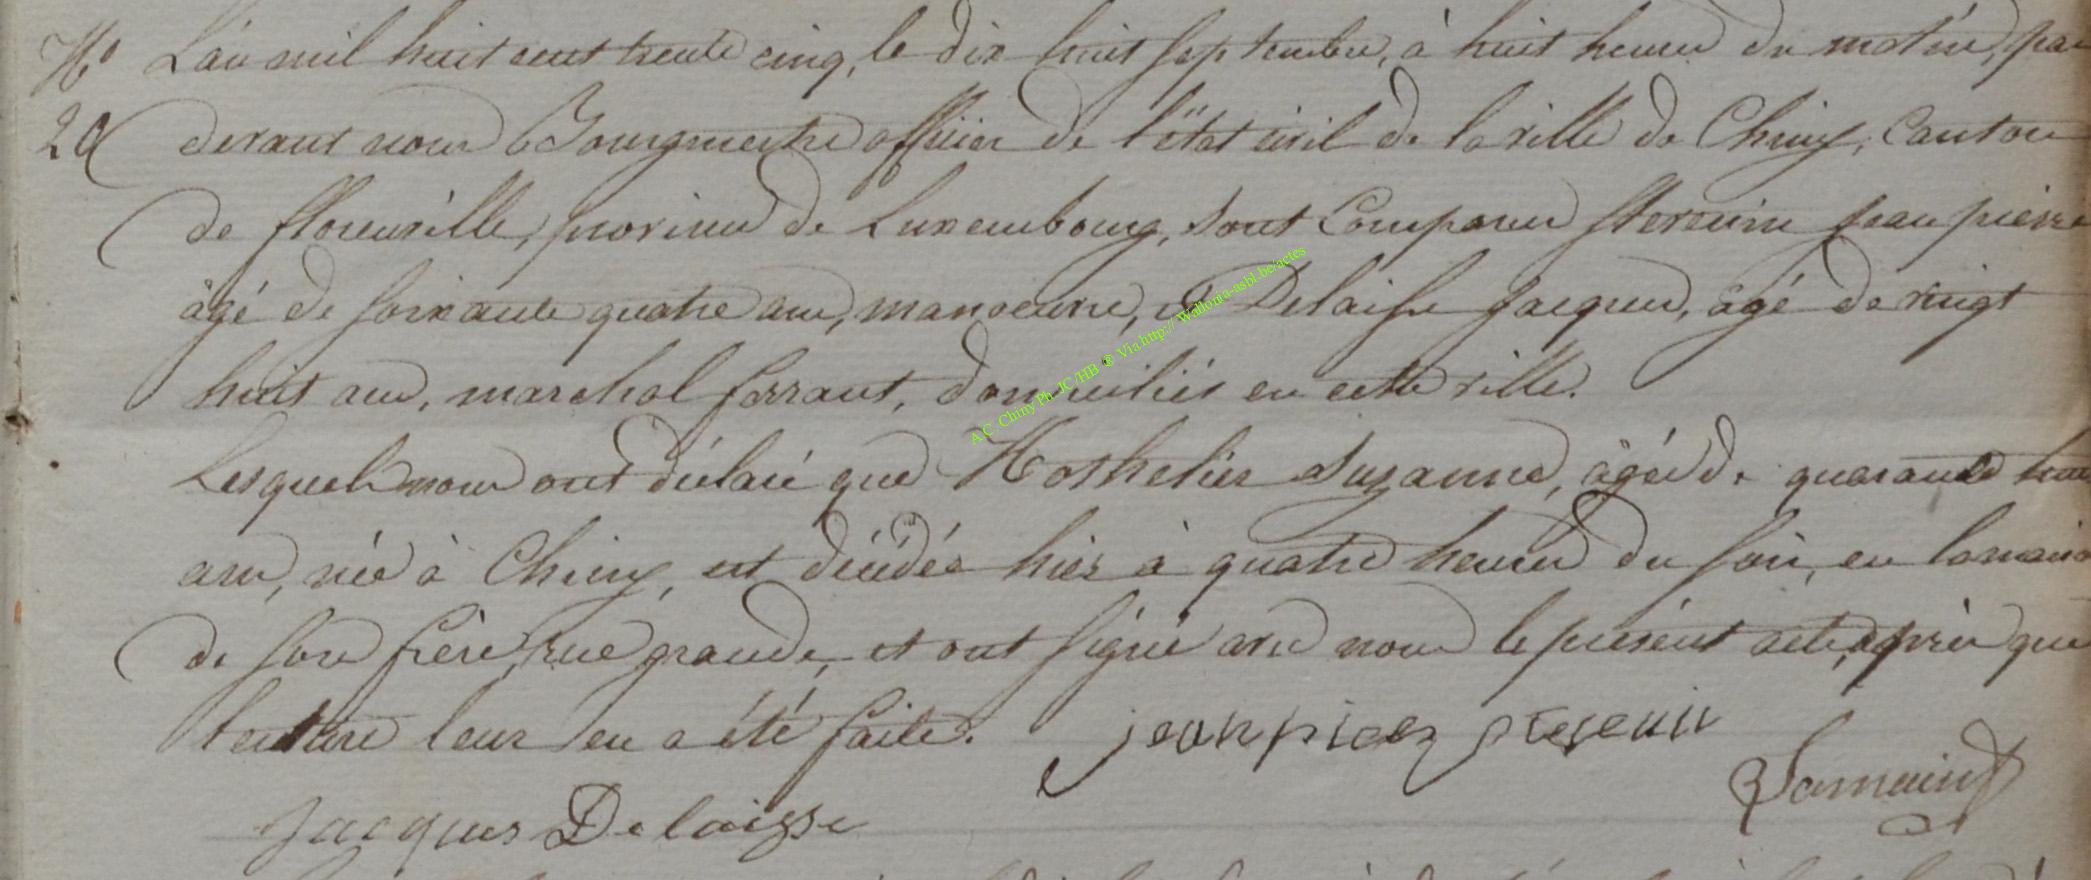 N° L'an mil huit cent trente cinq, le dix huit septembre, à huit heures du matin, par
20 devant nous Bourgmestre officier de l'état civil de la ville de Chiny, Canton
de florenville, province de Luxembourg, sont Comparus Stevenin jean pierre
âgé de soixante quatre ans, manoeuvre, et Delaisse jacques, âgé de vingt
huit ans, marchal ferrant, domiciliés en cette ville.
Lesquels nous ont déclaré que Hoshelier Suzanne, âgée de quarante
ans, née à Chiny, est décédée hier à quatre heures du soir, en la maison
de son frère, rue grande, et ont signé avec nous le présent acte, après que
lecture leur en a été faite. jean pierre
jacques Delaisse
A.C. Chiny Ph. JC/HB ® Via http:// Wallonia-asbl.be/actes